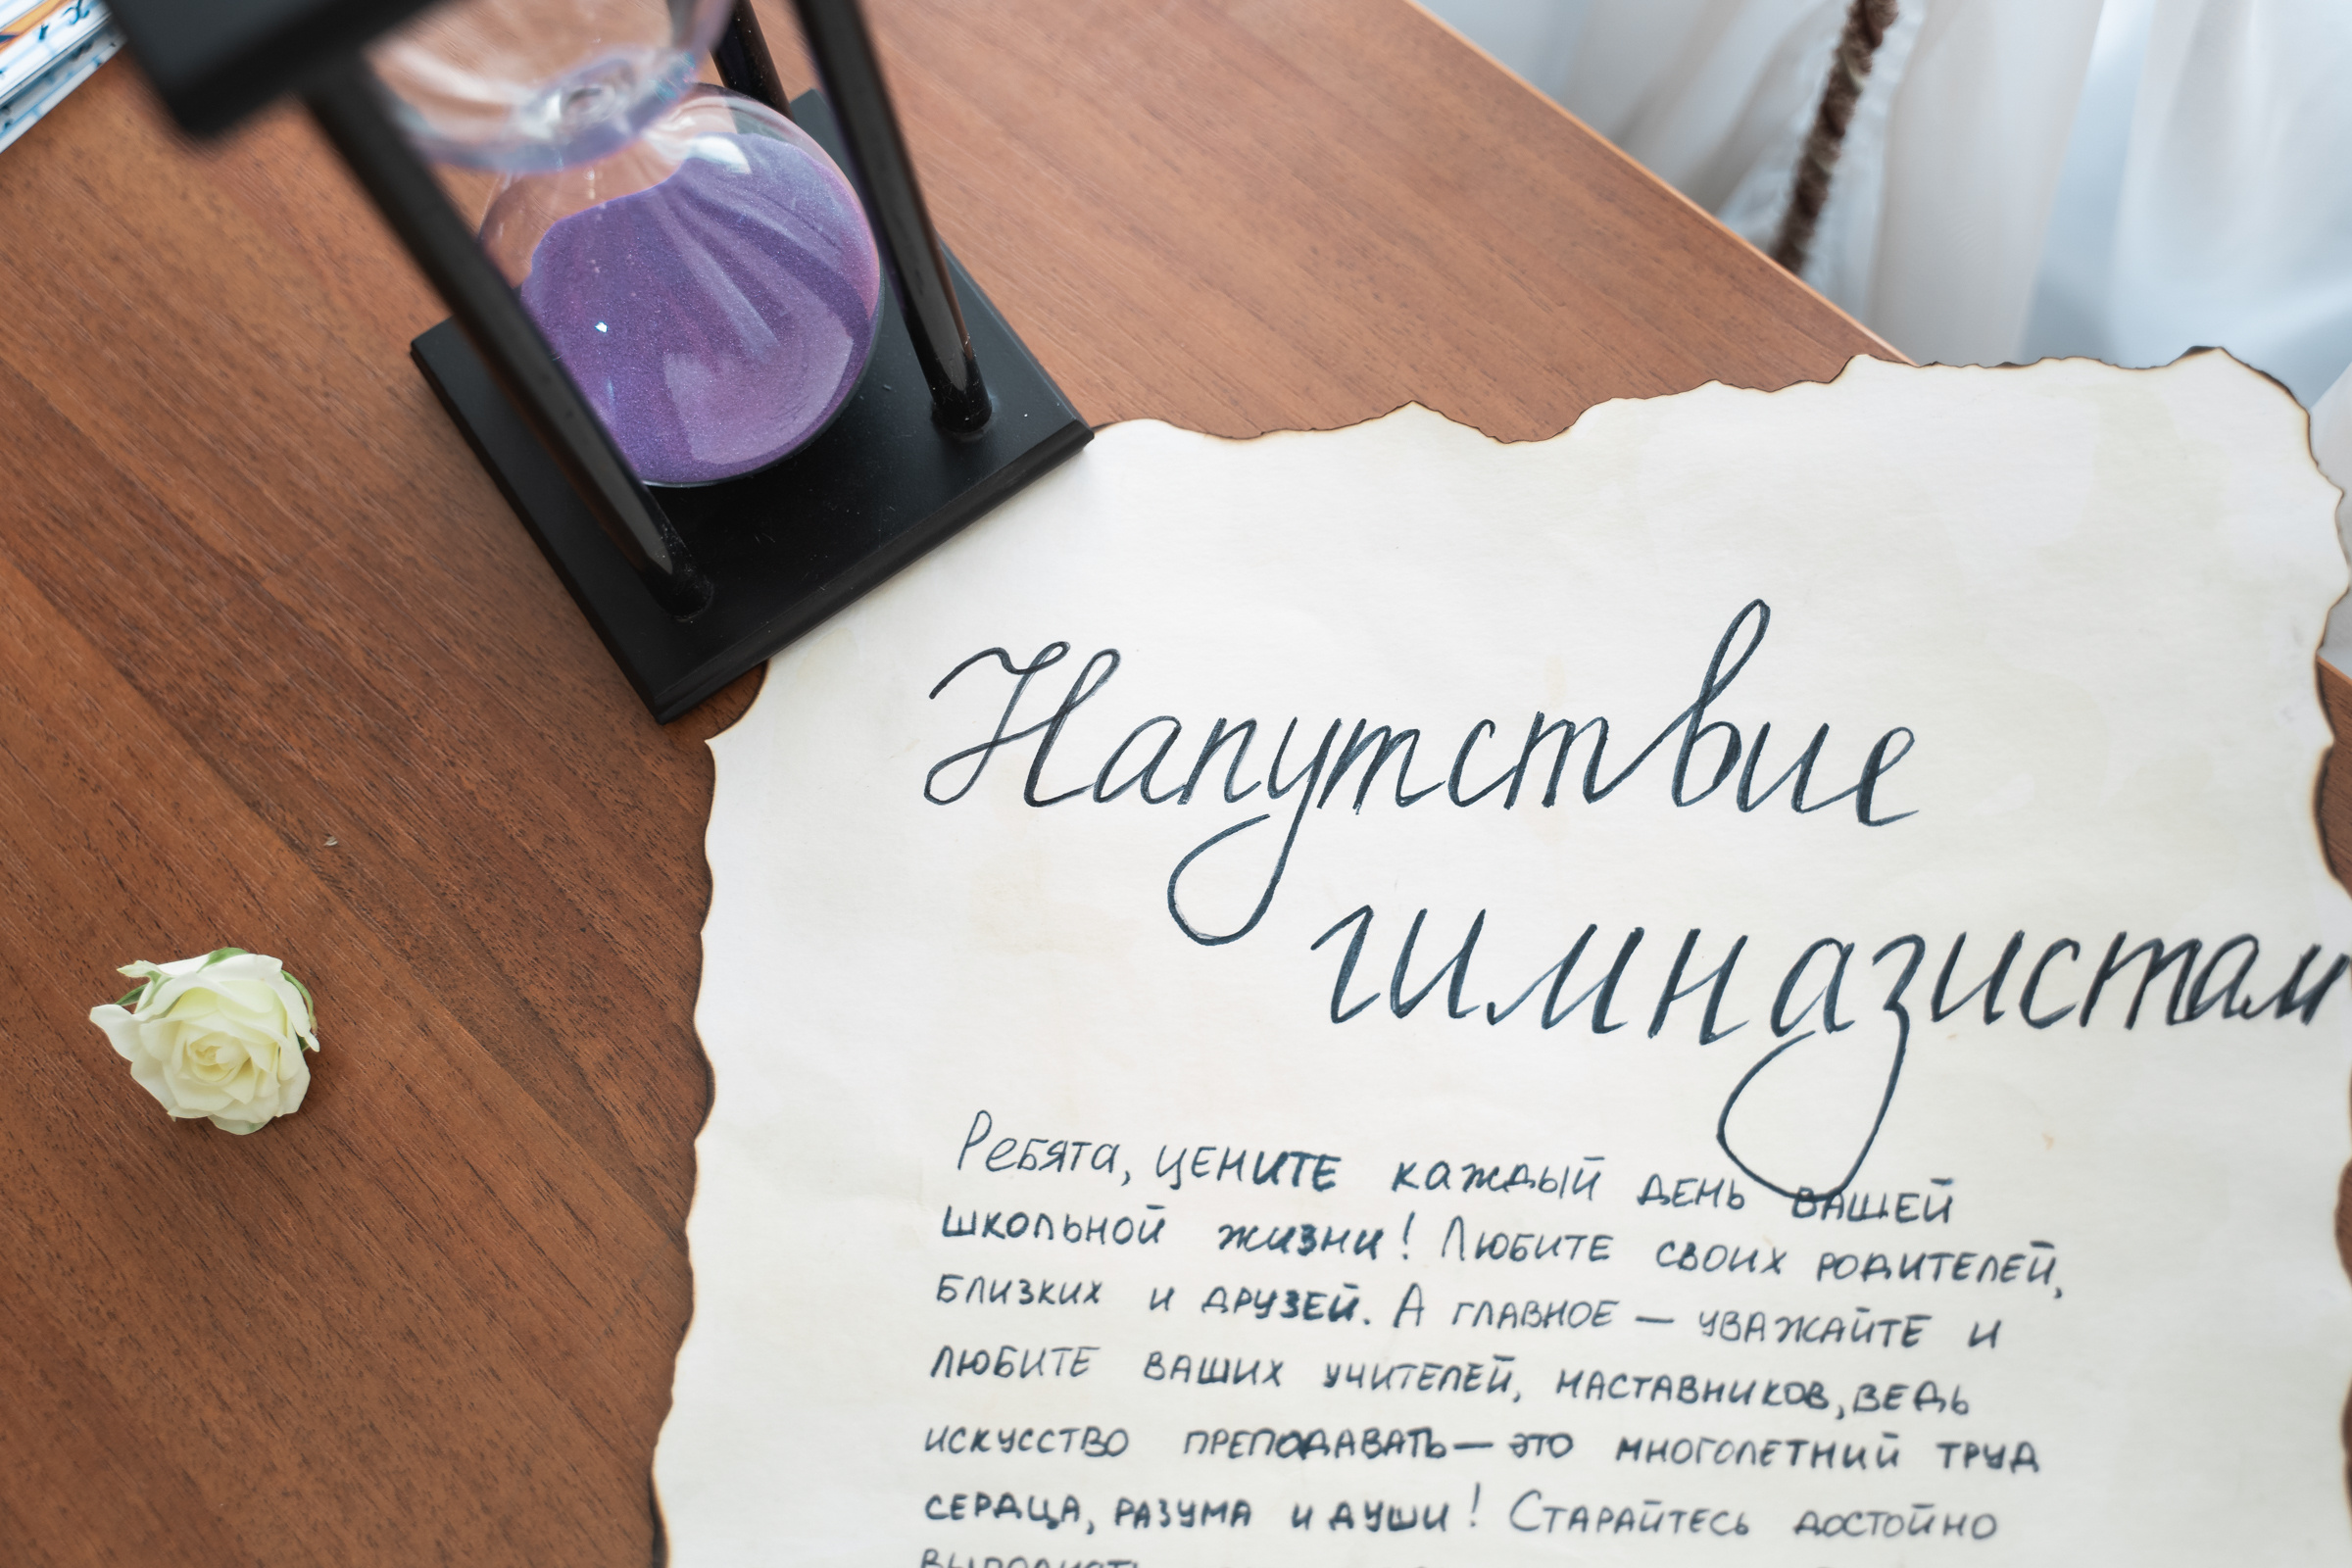 Напутствие
гимназистам
Ребята, цените каждый день вашей
школьной жизни! Любите своих родителей,
близких и друзей. А главное — уважайте и
любите ваших учителей, наставников, ведь
искусство преподавать — это многолетний труд
сердца, разума и души! Старайтесь достойно